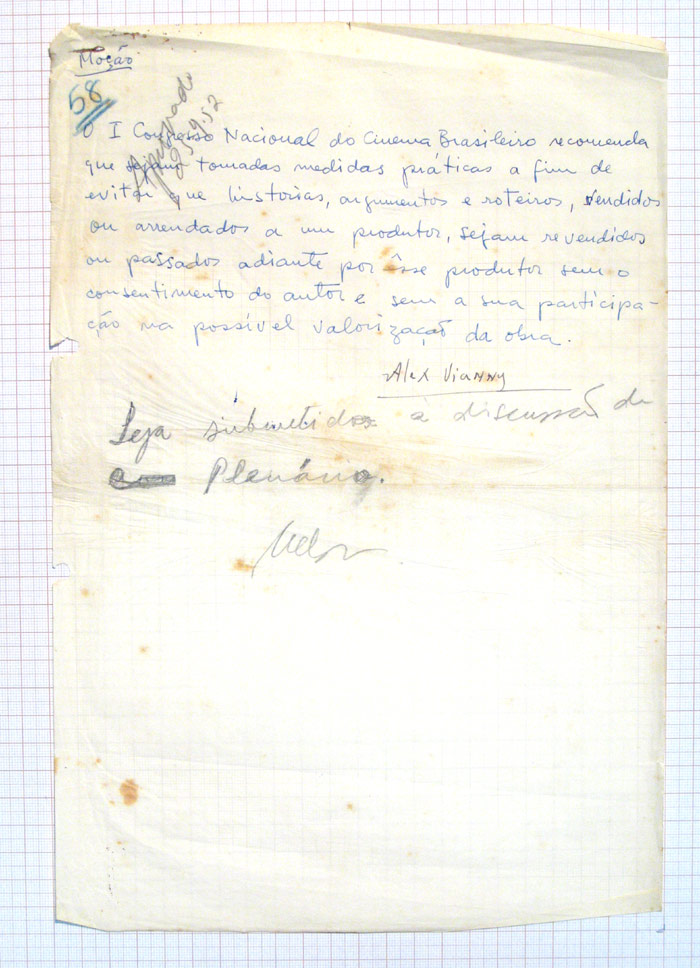 Moção
58
Aprovado
25.9.52
O I Congresso Nacional do Cinema Brasileiro recomenda
que sejam tomadas medidas práticas a fim de
evitar que historias, argumentos e roteiros, vendidos
ou arrendados a um produtor, sejam revendidos
ou passados adiante por êsse produtor sem o
consentimento do autor e sem a sua participa-
ção na possível valorização da obra.
Alex Vianny
Seja submetido à discussão do
Plenário.